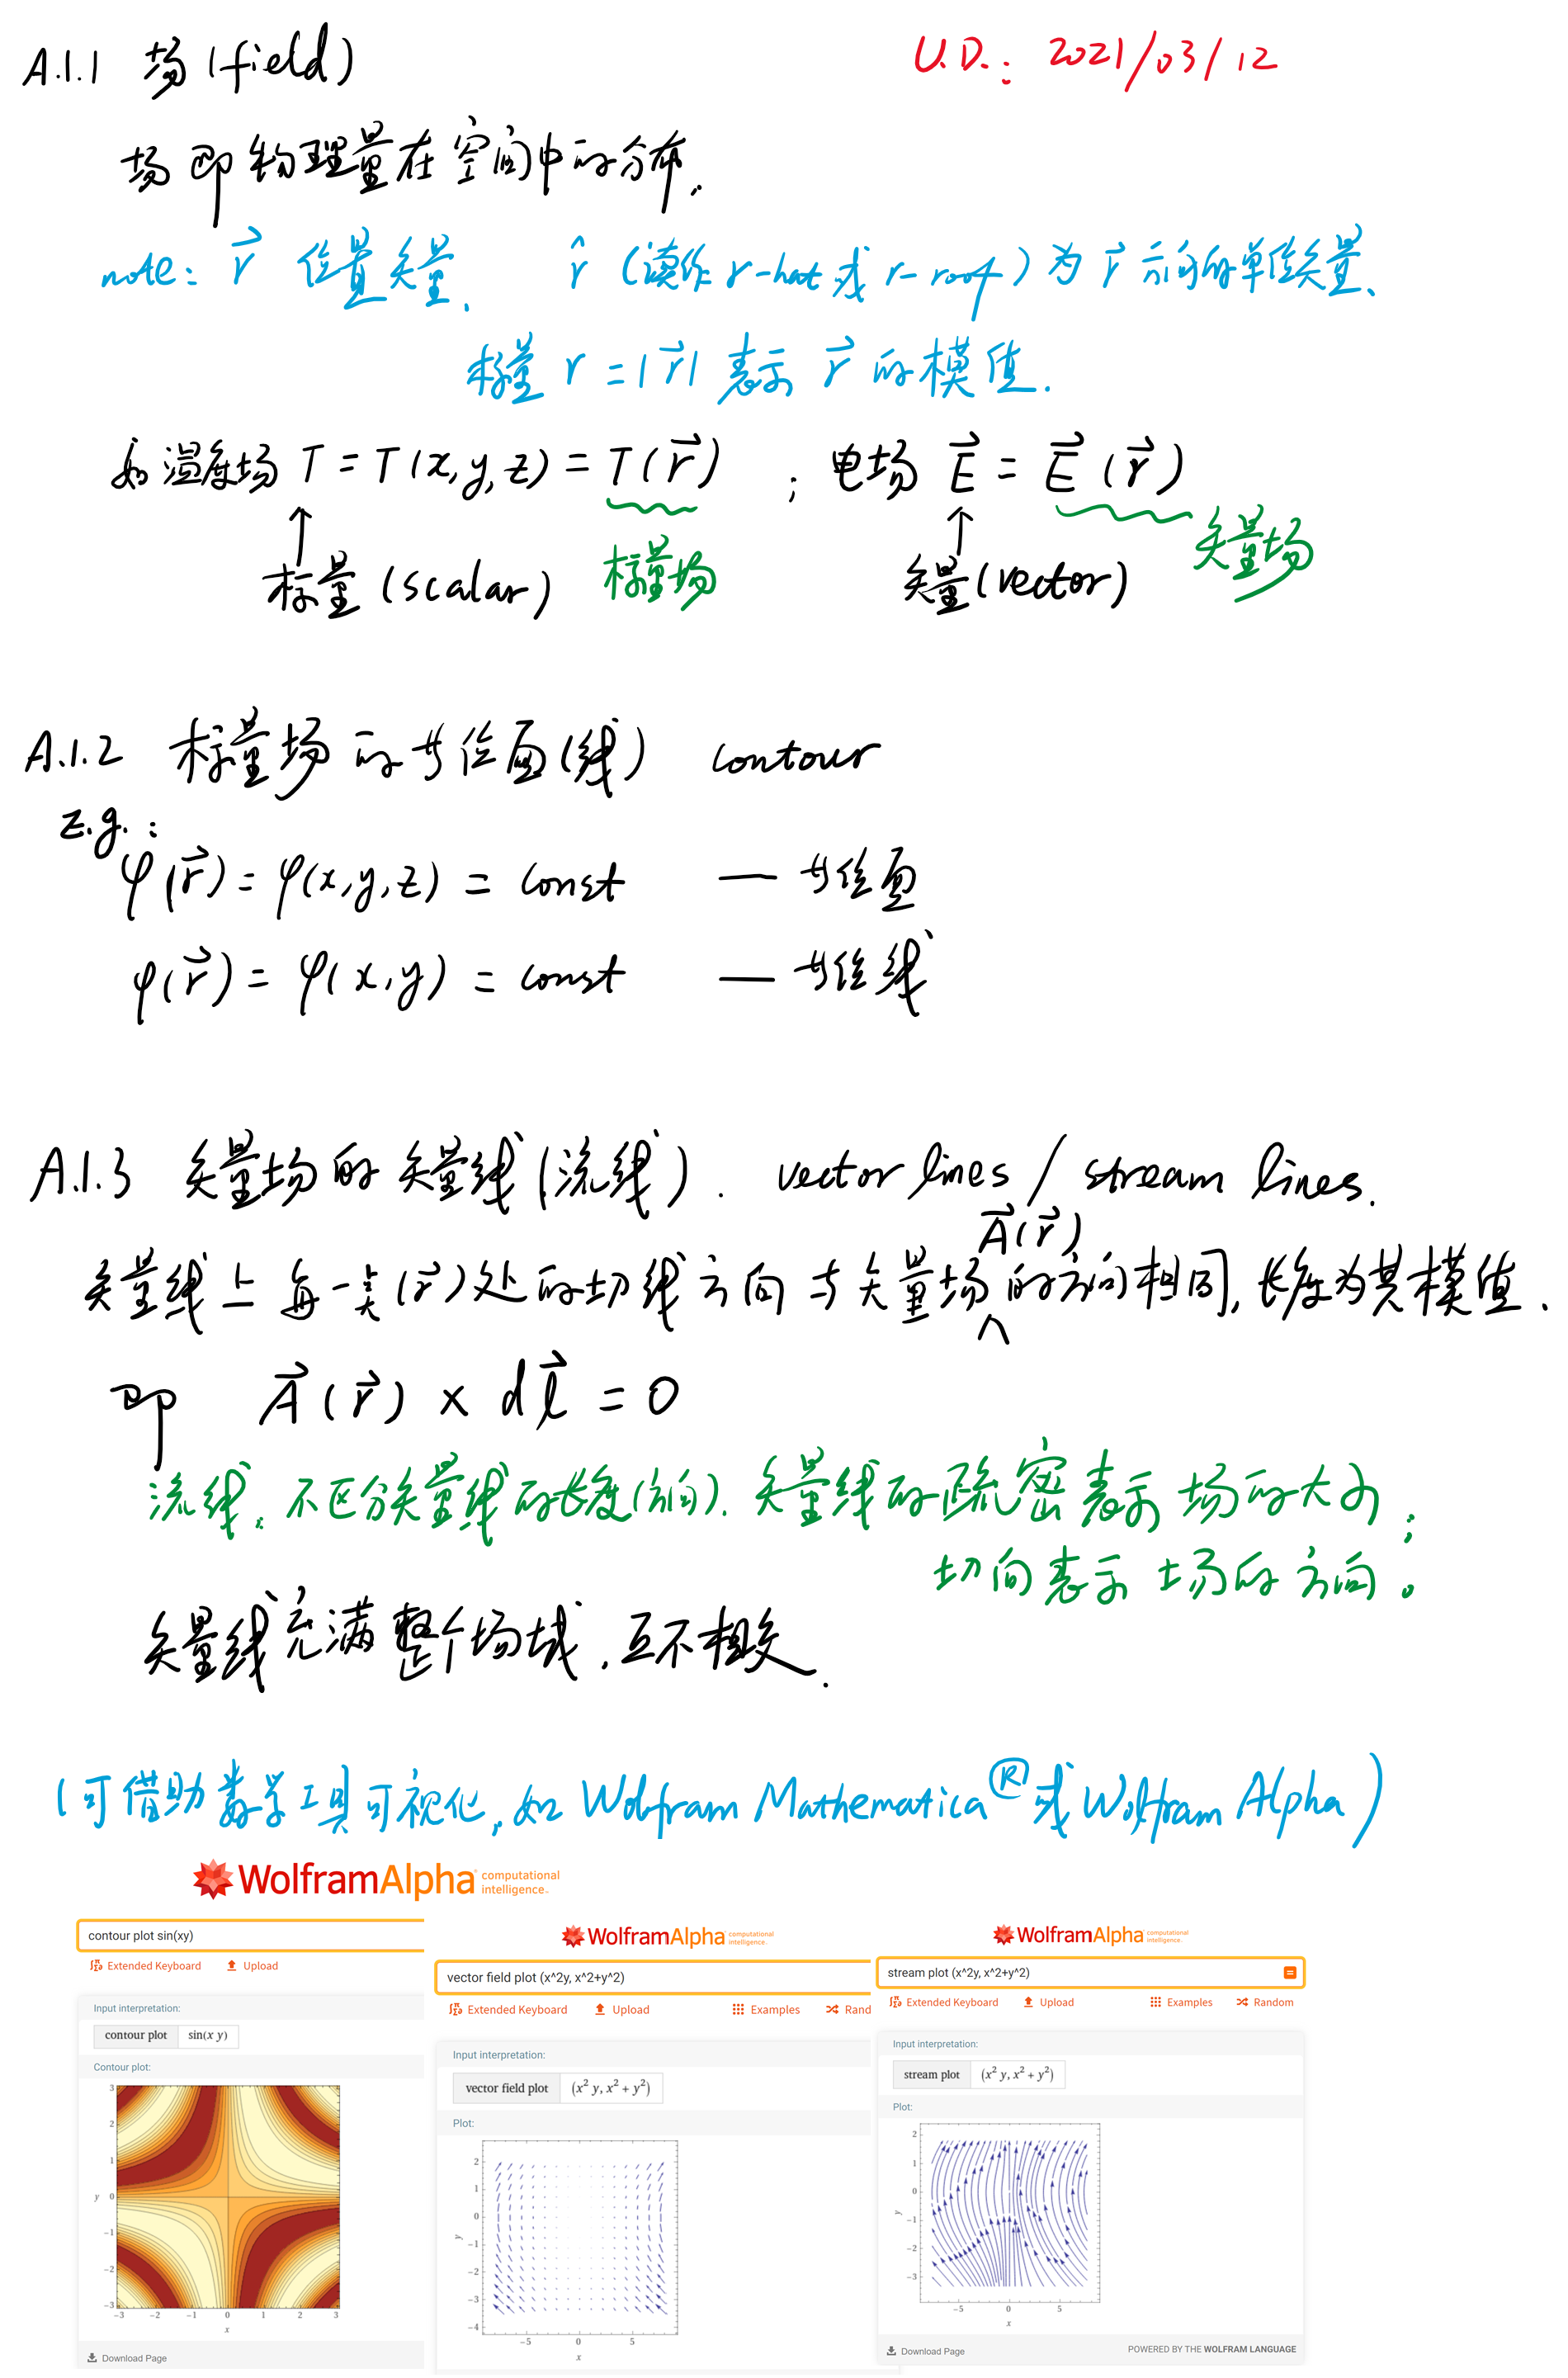 A.1.1 场 (field)
U.D.: 2021/03/12
场即物理量在空间中的分布.
note: r⃗ 位置矢量. r̂ (读作 r-hat 或 r-roof) 为 r⃗ 方向的单位矢量.
标量 r = |r⃗| 表示 r⃗ 的模值.
如温度场 T = T(x,y,z) = T(r⃗) ; 电场 E⃗ = E⃗(r⃗)
↑ ↑ 矢量场
标量 (scalar) 标量场 矢量 (vector)
A.1.2 标量场的等位面(线) contour
z.g.:
φ(r⃗) = φ(x,y,z) = const — 等位面
φ(r⃗) = φ(x,y) = const — 等位线
A.1.3 矢量场的矢量线(流线). vector lines / stream lines.
A⃗(r⃗)
矢量线上每一点(r⃗)处的切线方向与矢量场^的方向相同, 长度为其模值.
即 A⃗(r⃗) × dl⃗ = 0
流线: 不区分矢量线的长度(方向). 矢量线的疏密表示场的大小;
切向表示场的方向。
矢量线充满整个场域, 互不相交.
(可借助数学工具可视化, 如 Wolfram Mathematica® 或 Wolfram Alpha)
WolframAlpha computational intelligence.
contour plot sin(xy)
Extended Keyboard Upload
Input interpretation:
contour plot sin(x y)
Contour plot:
3
2
1
y 0
-1
-2
-3
-3 -2 -1 0 1 2 3
x
Download Page
WolframAlpha computational intelligence.
vector field plot (x^2y, x^2+y^2)
Extended Keyboard Upload Examples Rand
Input interpretation:
vector field plot (x² y, x² + y²)
Plot:
2
1
0
y -1
-2
-3
-4
-5 0 5
x
WolframAlpha computational intelligence.
stream plot (x^2y, x^2+y^2)
Extended Keyboard Upload Examples Random
Input interpretation:
stream plot (x² y, x² + y²)
Plot:
2
1
0
y -1
-2
-3
-5 0 5
x
Download Page POWERED BY THE WOLFRAM LANGUAGE